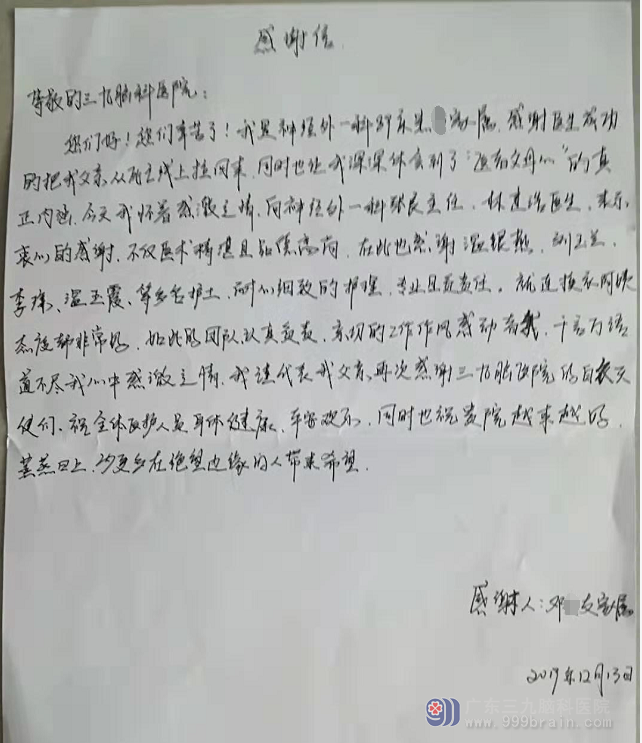 感谢信
尊敬的三九脑科医院：
您们好！您们辛苦了！我是神经外一科39床朱家属，感谢医生成功
的把我父亲从死亡线上拉回来，同时也让我深深体会到了“医者父母心”的真
正内涵，今天我怀着感激之情，向神经外一科张良主任、林志浩医生，表示
衷心的感谢，不仅医术精湛且品德高尚，在此也感谢温银燕、刘
李瑜、温玉霞、等多名护士，耐心细致的护理，专业且负责任，就连换衣阿姨
态度都非常好，如此的团队认真负责，亲切的工作作风感动着我，千言万语
道不尽我心中感激之情，我谨代表我父亲再次感谢三九脑医院的白衣天
使们，祝全体医护人员身体健康、平安欢乐，同时也祝贵院越来越好，
蒸蒸日上，为更多在绝望边缘的人带来希望。
感谢人：邓友家属
2019年12月13日
广东三九脑科医院
www.999brain.com